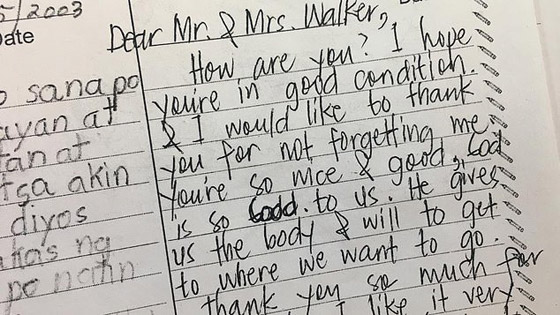 5/2003
Date
sana po
ayan at
tan at
akin
diyos
ng
po
Dear Mr. & Mrs. Walker,
How are you? I hope
you're in good condition.
& I would like to thank
you for not forgetting me.
You're so nice & good, God
is so Godd. to us. He gives
us the body & will to get
to where we want to go.
thank you so much for
I like it very